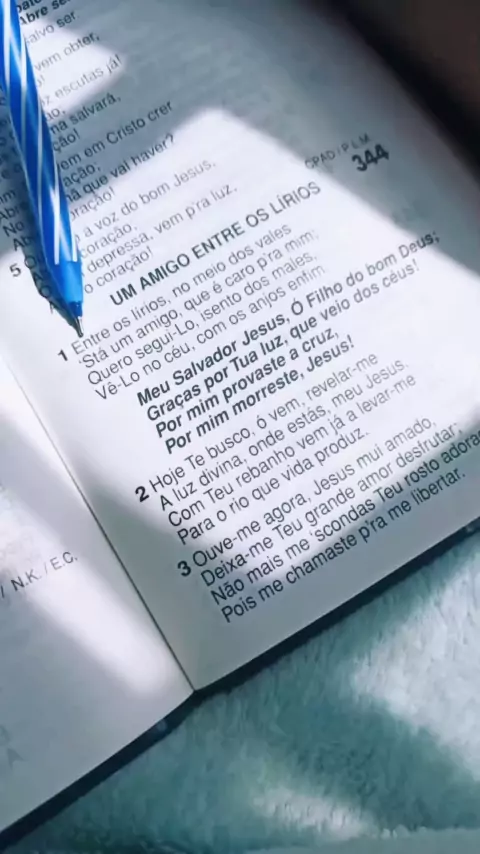 salvo ser
vem obter,
z escutas já!
na salvará,
em em Cristo crer
que vai haver?
a voz do bom Jesus,
coração,
depressa, vem p'ra luz.
o coração!
CPAD / P.L.M.
344
UM AMIGO ENTRE OS LÍRIOS
1 Entre os lírios, no meio dos vales
'Stá um amigo, que é caro p'ra mim;
Quero segui-Lo, isento dos males,
Vê-Lo no céu, com os anjos enfim.
Meu Salvador Jesus, Ó Filho do bom Deus;
Graças por Tua luz, que veio dos céus!
Por mim provaste a cruz,
Por mim morreste, Jesus!
2 Hoje Te busco, ó vem, revelar-me
A luz divina, onde estás, meu Jesus.
Com Teu rebanho vem já a levar-me
Para o rio que vida produz.
3 Ouve-me agora, Jesus mui amado,
Deixa-me Teu grande amor desfrutar;
Não mais me 'scondas Teu rosto adora
Pois me chamaste p'ra me libertar.
/ N.K. / E.C.